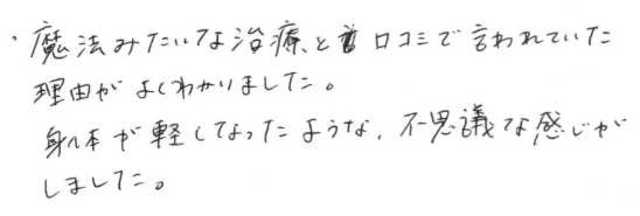 ・魔法みたいな治療、と口コミで言われていた
理由がよくわかりました。
身体が軽くなったような、不思議な感じが
しました。